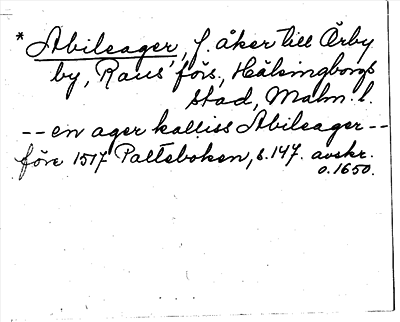 * Abileager, f. åker till Ärby
by, Raus förs., Hälsingborgs
stad, Malm. l.
-- en ager kalliss Abileager --
före 1517 Palteboken, s. 147. avskr.
o. 1650.